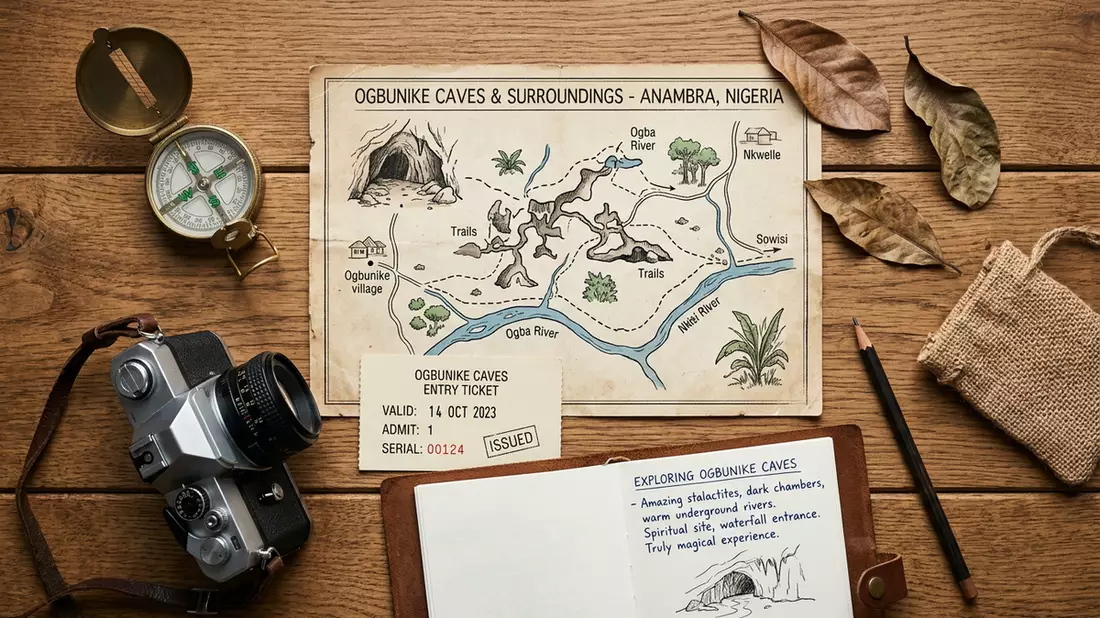 OGBUNIKE CAVES & SURROUNDINGS - ANAMBRA, NIGERIA
Ogba
River
Nkwelle
Trails
Sowisi
Ogbunike
village
Trails
Ogba River
Nkisi River
OGBUNIKE CAVES
ENTRY TICKET
VALID: 14 OCT 2023
ADMIT: 1
SERIAL: 00124
ISSUED
EXPLORING OGBUNIKE CAVES
- Amazing stalactites, dark chambers,
warm underground rivers.
Spiritual site, waterfall entrance.
Truly magical experience.